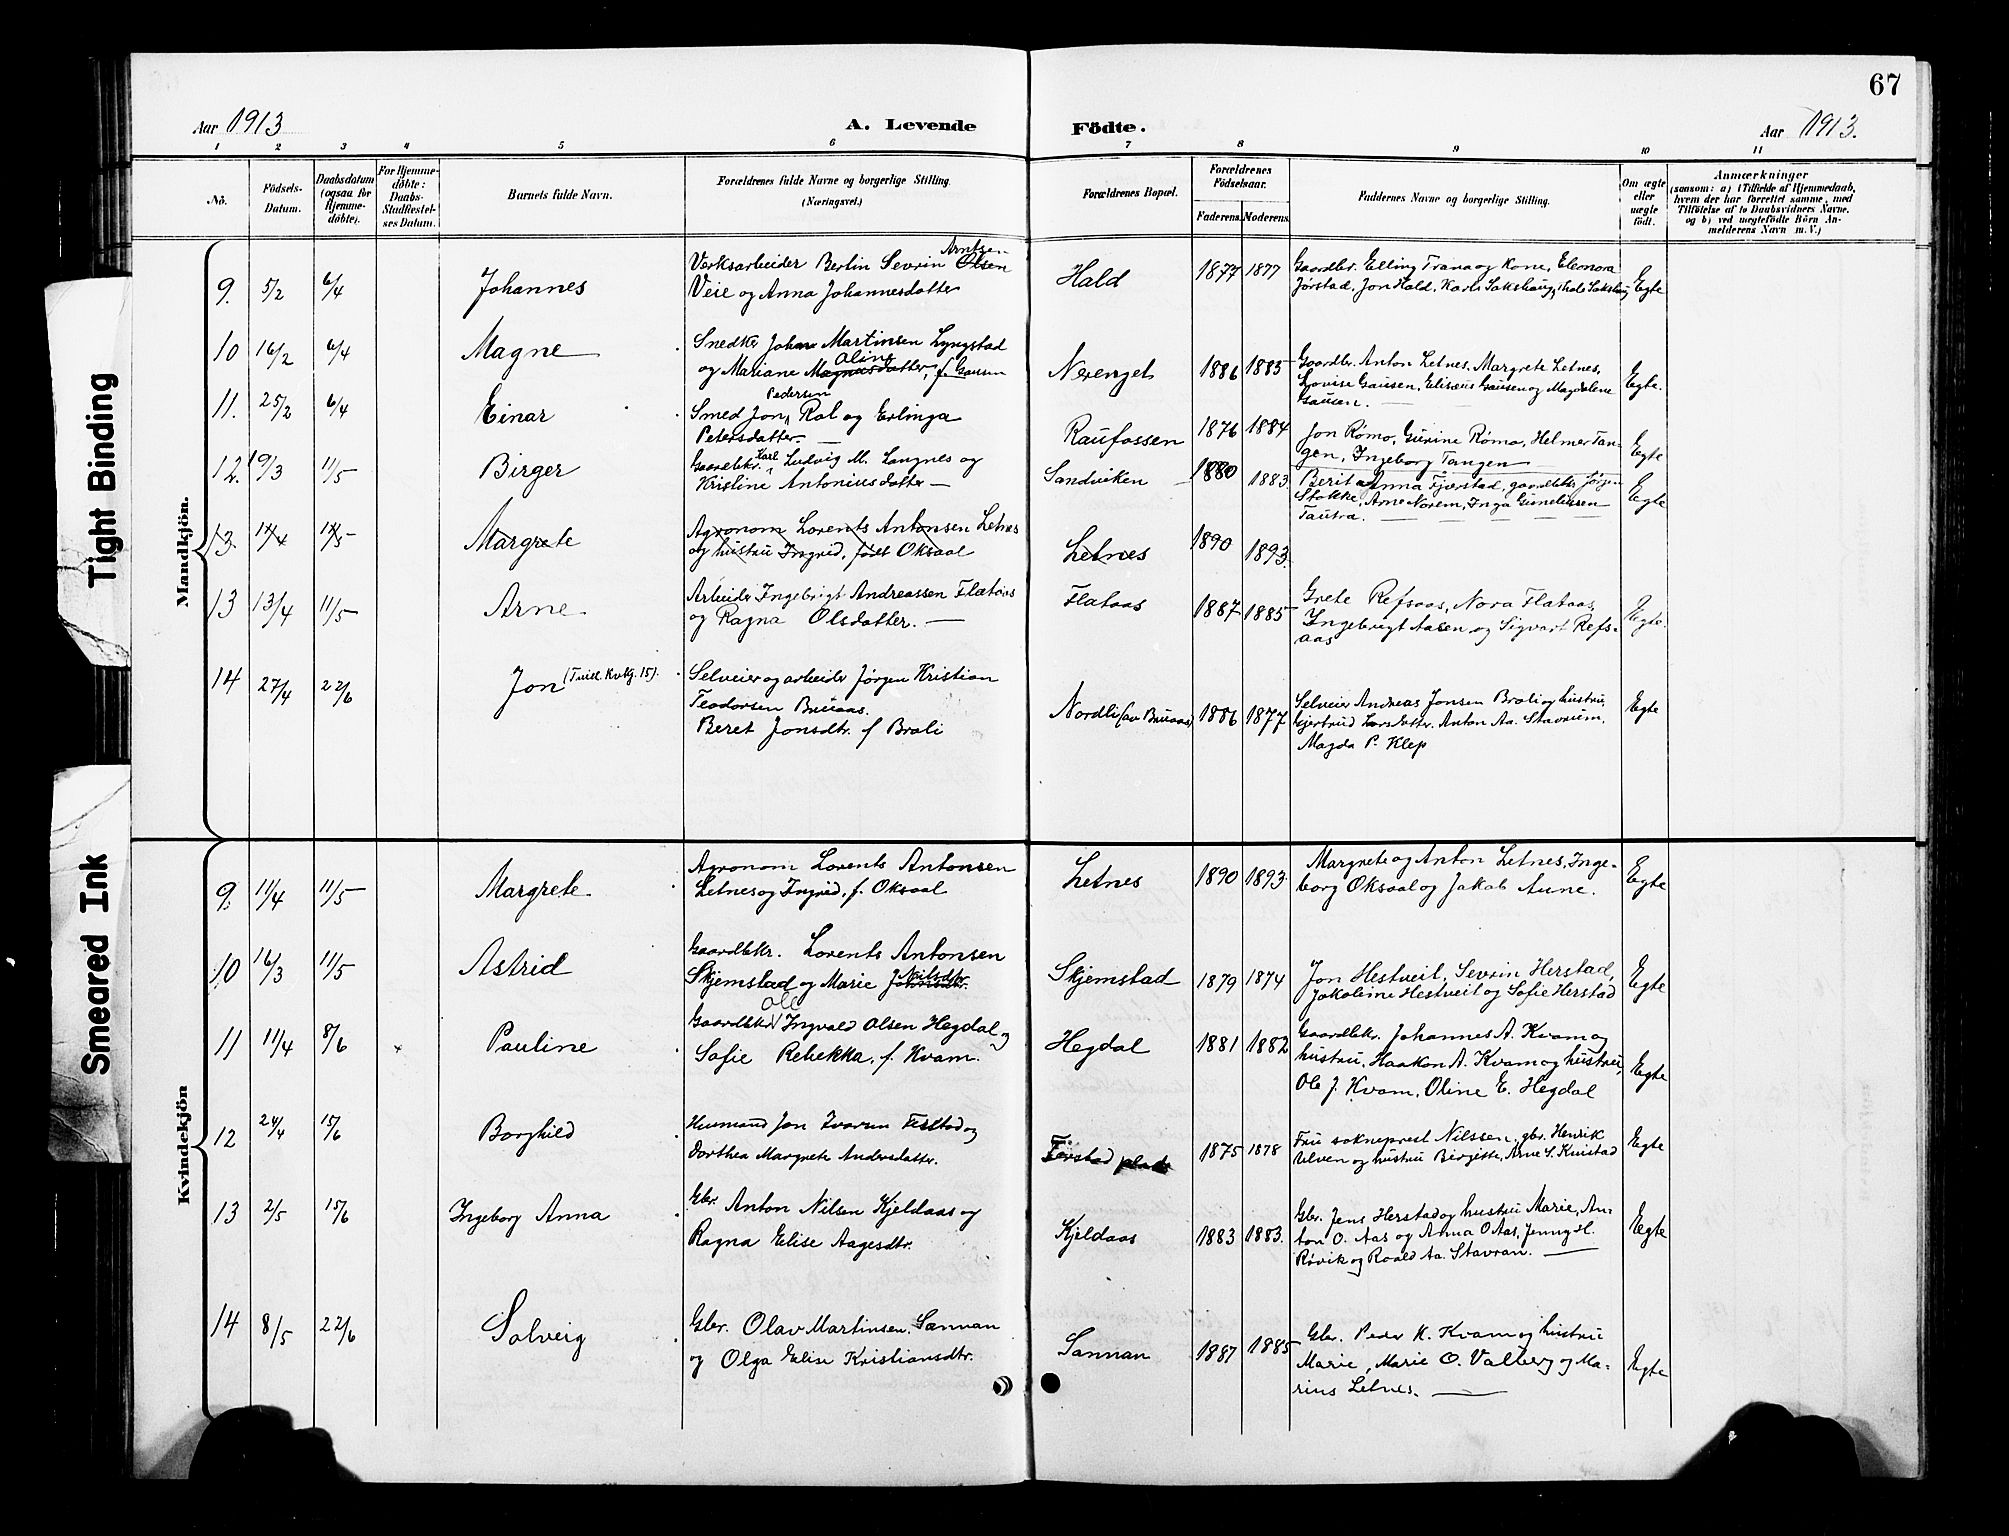 67
Aar 1913
A. Levende Födte.
Aar 1913.
1 2 3 4 5 6 7 8 9 10 11
No.
Födsels-Datum.
Daabsdatum (ogsaa for Hjemme-døbte).
For Hjemme-døbte: Daabs-Stadfæstel-ses Datum.
Barnets fulde Navn.
Forældrenes fulde Navne og borgerlige Stilling. (Næringsvei.)
Forældrenes Bopæl.
Forældrenes Födselsaar.
Faderens. Moderens.
Faddernes Navne og borgerlige Stilling.
Om ægte eller uægte födt.
Anmærkninger
(saasom: a) i Tilfælde af Hjemmedaab,
hvem der har forrettet samme, med
Tilföielse af to Daabsvidners Navne.
og b) ved uegtefödte Börn An-
melderens Navn m. V.)
Mandkjön.
9. 5/2 6/4 Johannes
Verksarbeider Berlin Severin Olsen Arntsen
Veie og Anna Johannesdatter
Hald 1877 1877
Gaardbr. Elling Trana og Kone, Eleonora
Jørstad, Jon Hald, Karl Sakshaug, Sakshaug
Egte
10 16/2 6/4 Magne
Snedker Johan Martinsen Lyngstad
og Mariane Magnusdatter Oline, f. Gausen
Nerenget 1886 1885
Gaardbr. Anton Letnes, Margrete Letnes,
Lovise Gausen, Elisæus Gausen og Magdalene
Gausen.
Egte.
11. 25/2 6/4 Einar
Smed Jon Pedersen Rol og Erlinga
Petersdatter
Raufossen 1876 1884
Jon Rømo, Gurine Rømo, Helmer Tan-
gen, Ingeborg Tangen
Egte
12. 19/3 11/5 Birger
Gaardbkr. Karl Ludvig M. Langnes og
Kristine Antoniusdatter
Sandviken 1880 1883
Berit og Anna Fjerstad, gaardbkr. Jørgen
Stokke, Arne Norem, Inga
Tautra.
Egte
13. 11/4 11/5 Margrete
Agronom Lorents Antonsen Letnes
og hustru Ingrid, født Oksaal
Letnes 1890 1893.
13 13/4 11/5 Arne
Arbeider Ingebrigt Andreassen Flataas
og Ragna Olsdatter.
Flataas 1887 1885
Grete Refsaas, Nora Flataas,
Ingebrigt Aasen og Sigvart Refs-
aas
Egte.
14 27/4 22/6 Jon (Tvill. Kvkj. 15).
Selveier og arbeider Jørgen Kristian
Teodorsen Bruaas.
Beret Jonsdtr. f Brali
Nordli (av Bruaas) 1886 1877
Selveier Andreas Jonsen Brali og hustru
Gjertrud Larsdatter. Anton Aa. Stavrum.
Magda P. Klep
Egte
Kvindekjön
9. 11/4 11/5 Margrete
Agronom Lorents Antonsen
Letnes og Ingrid, f. Oksaal
Letnes 1890 1893.
Margrete og Anton Letnes, Inge-
borg Oksaal og Jakob Aune.
Egte
10 16/3 11/5 Astrid
Gaardbkr. Lorents Antonsen
Skjemstad og Marie Nilsdtr.
Skjemstad 1879 1874
Jon Hestveit, Severin Herstad,
Jakobine Hestveit og Sofie Herstad
Egte
11 11/4 8/6 Pauline
Gaardbkr Ole Ingvald Olsen Hegdal og
Sofie Rebekka, f. Kvam.
Hegdal 1881 1882
Gaardbkr. Johannes A. Kvam og
hustru, Haakon A. Kvam og hustru,
Ole J. Kvam, Oline E. Hegdal
Egte
12 24/4 15/6 Borghild
Husmand Jon Ivarsen og
Dorthea Margrete Andersdatter.
plads 1875 1878
Fru sokneprest Nilssen, gbr. Henrik
Ulven og hustru Birgitte, Arne S.
Egte
13 2/5 15/6 Ingeborg Anna
Gbr. Anton Nilsen Kjeldaas og
Ragna Elise Aagesdtr.
Kjeldaas 1883 1883.
Gbr. Jens Herstad og hustru Marie, An-
ton O. Aas og Anna O Aas, Jenny H.
Røvik og Roald Aa. Stavran.
Egte
14 8/5 22/6 Solveig
Gbr. Olav Martinsen Sannan
og Olga Elise Kristiansdtr.
Sannan 1887 1885
Gbr. Peder K. Kvam og hustru
Marie, Marie O. Valberg og Ma-
rius Letnes.
Egte
Tight Binding
Smeared Ink